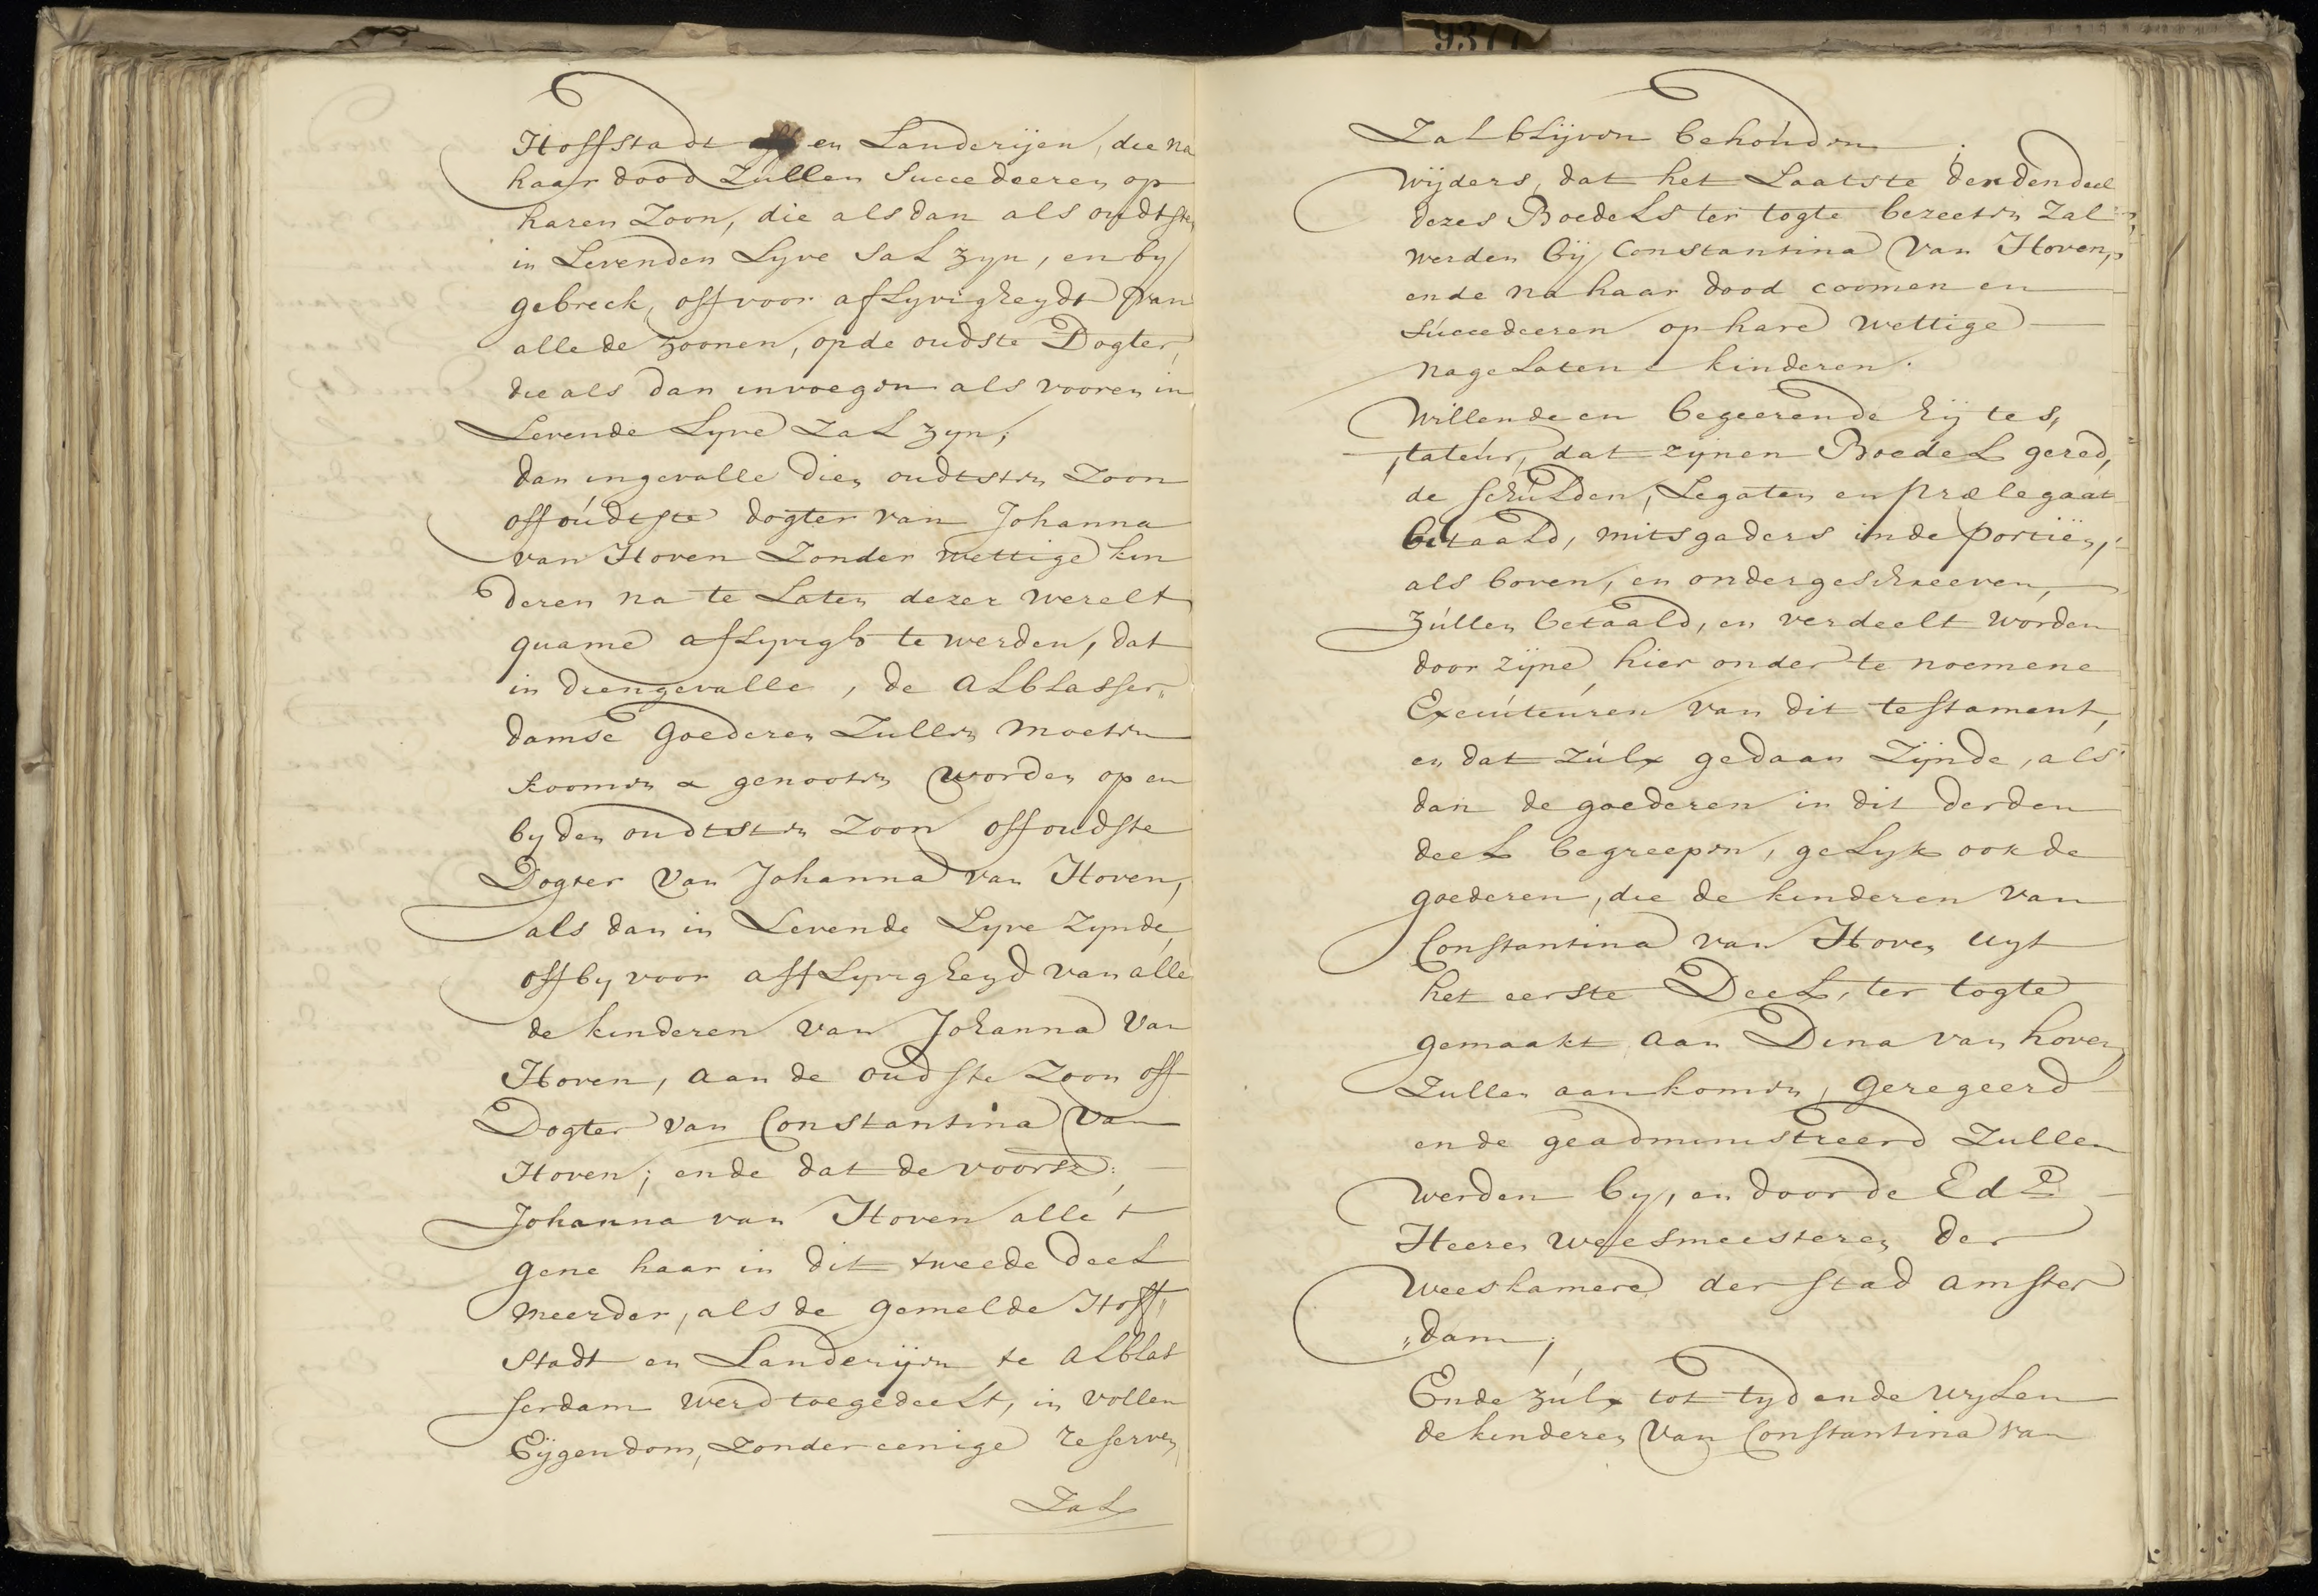 9377
Hoffstadt en Landerijen, die na
haar dood Zullen Succedeeren op
haren Zoon, die alsdan als oudtste
in Levenden Lyve Sal zyn, en by
gebreck, off voor aflyvigheydt van
alle de zoonen, op de oudste Dogter,
die als dan invoegen als vooren in
Levende Lyve Zal zyn;
dan ingevalle dien oudtsten Zoon
off oúdtste dogter van Johanna
van Hoven Zonder wettige kin
deren na te Laten dezer werelt
quame aflyvigh te werden, dat
in diengevalle, de Alblasser„
damse Goederen Zullen moeten
koomen & genooten worden op en
by den oudtsten Zoon off oudste
Dogter van Johanna van Hoven,
als dan in Levende Lyve Zynde,
off by voor afflyvigheyd van alle
de kinderen van Johanna van
Hoven, aan de oudste Zoon off
Dogter van Constantina van
Hoven; ende dat de voorsz:
Johanna van Hoven alle 't
gene haar in dit tweede deel
meerder, als de gemelde Hoff„
Stadt en Landerijen te Alblas
serdam werd toegedeelt, in vollen
Eijgendom, zonder eenige reserven
Zal
Zal blijven behoúden.
Wijders, dat het Laatste derdendeel
dezes Boedels ter togte bezeeten Zal
werden bij Constantina van Hoven,
ende na haar dood coomen en
súccedeeren op hare wettige
nagelatene kinderen.
Willende en begeerende hij tes„
„tateúr, dat zijnen Boedel gered,
de schúlden, Legaten en prælegaat
betaald, mitsgaders in de portiën,
als boven, en ondergeschreeven,
zúllen betaald, en verdeelt worden
door zijne hier onder te noemene
Execúteúren van dit testament,
en dat zúlx gedaan Zijnde, als
dan de goederen in dit derden
deel begreepen, gelyk ook de
goederen, die de kinderen van
Constantina van Hoven uyt
het eerste Deel, ter togte
gemaakt aan Dina van hoven
Zullen aankomen, geregeerd
ende geadministreerd Zullen
werden by, en door de Ed.e
Heeren weesmeesteren der
Weeskamere der stad Amster
„dam;
Ende zúlx tot tyd ende wylen
de kinderen van Constantina van